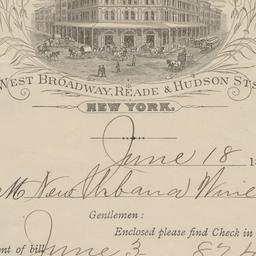 West Broadway, Reade & Hudson Sts
New York.
June 18 18
M New Urbana Wine
Gentlemen:
Enclosed please find Check in
nt of bill June 3 87.4